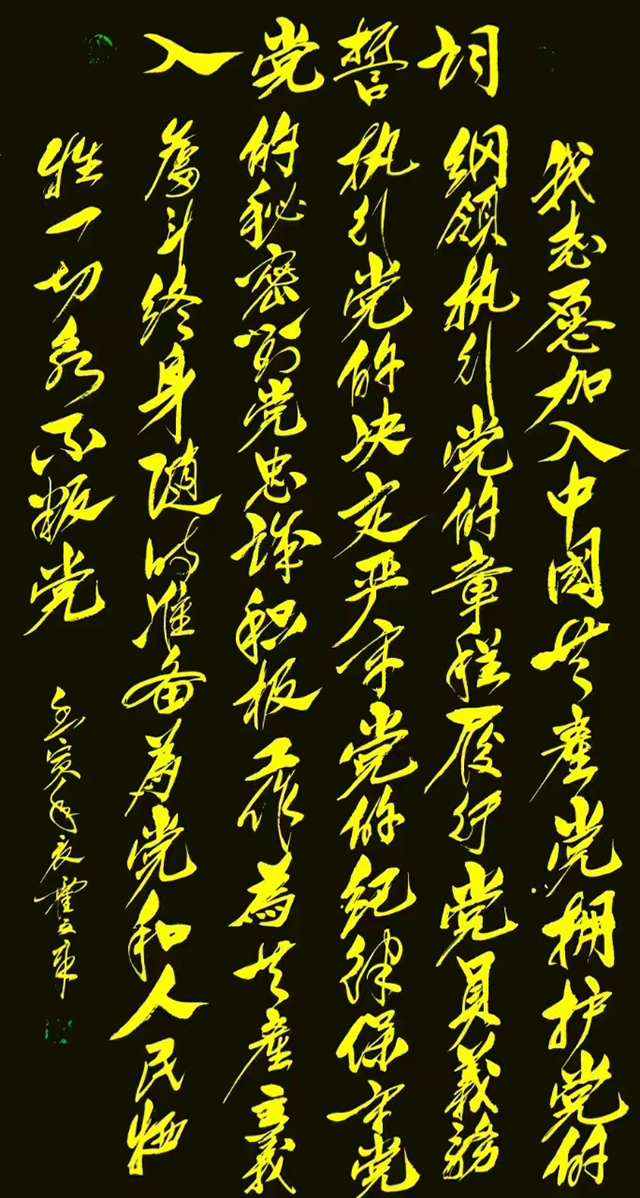 入党誓词
我志愿加入中國共產党拥护党的
纲领执行党的章程履行党员義務
执行党的决定严守党的纪律保守党
的秘密对党忠诚积极工作為共產主義
奮斗终身随时准备為党和人民牺
牲一切永不叛党
壬寅年夏霍